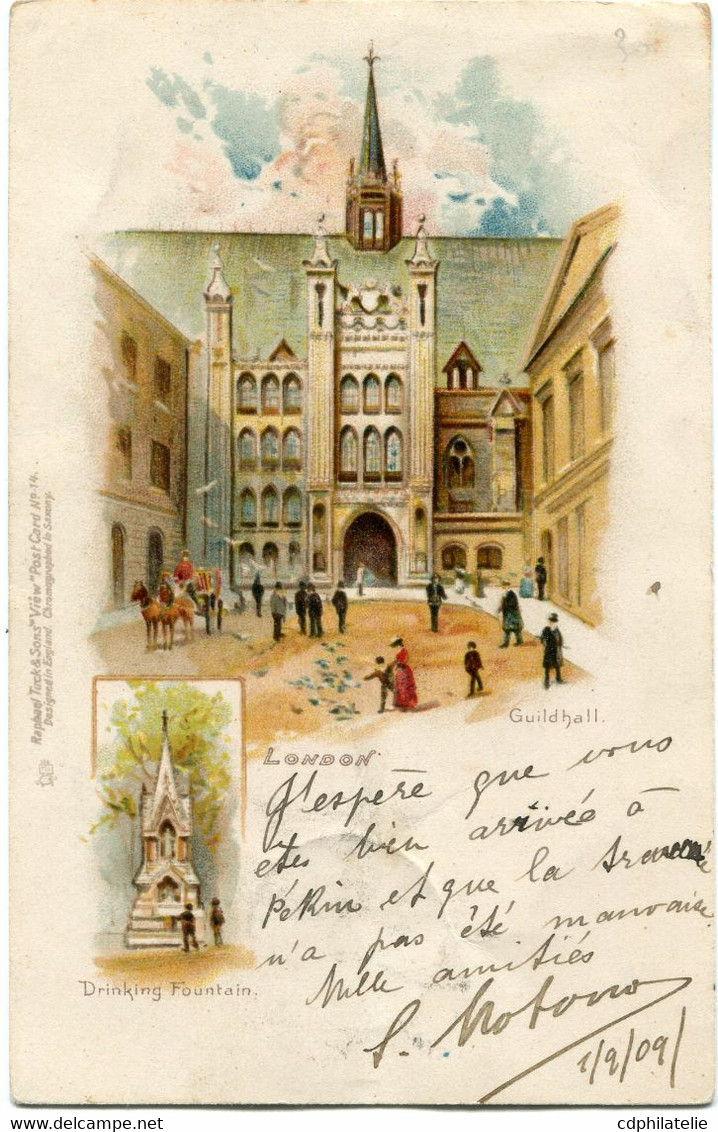 30
Guildhall.
LONDON
J'espère que vous
êtes bien arrivée à
Pékin et que la
n'a pas été mauvaise
Mille amitiés
S. Motono
1/9/09
Drinking Fountain.
Raphael Tuck & Sons' "View" Post Card No. 14.
Designed in England. Chromographed in Saxony.
cdphilatelie